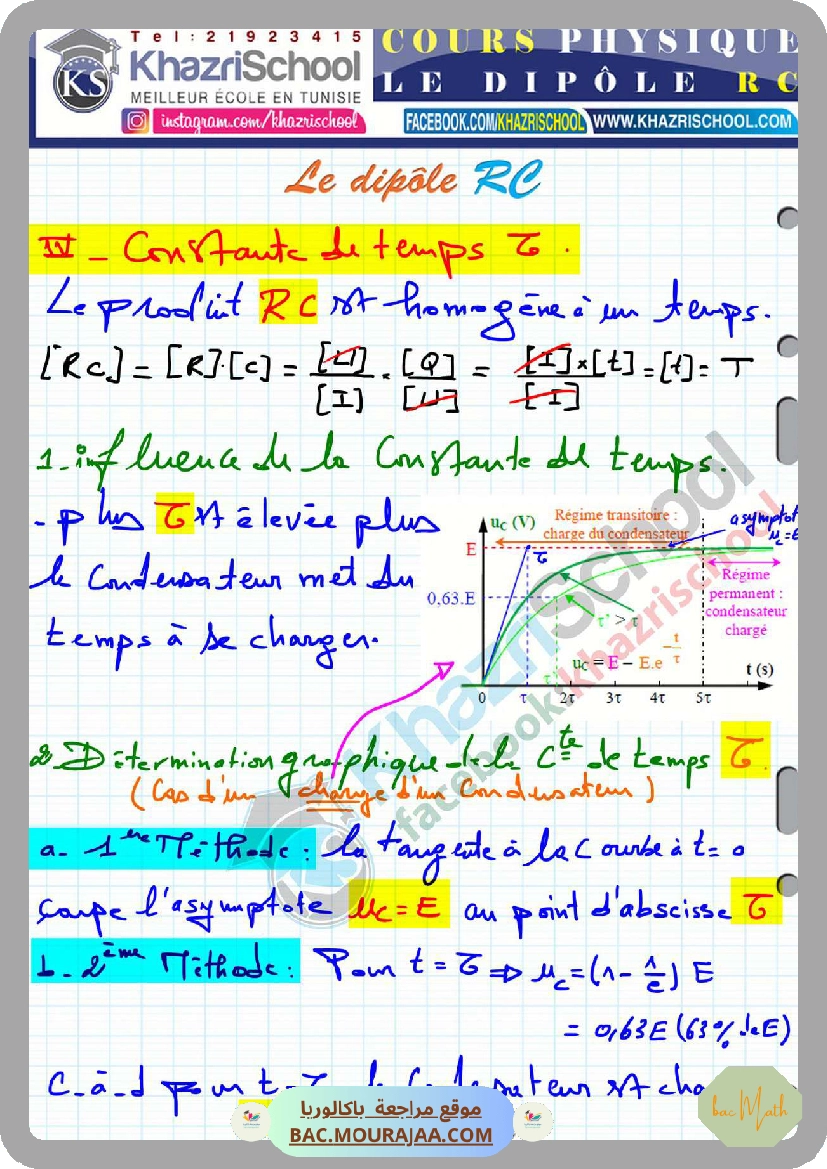 Tel:21923415
KhazriSchool
KS
MEILLEUR ÉCOLE EN TUNISIE
instagram.com/khazrischool
COURS PHYSIQUE
LE DIPÔLE RC
FACEBOOK.COM/KHAZRISCHOOL
WWW.KHAZRISCHOOL.COM
Le dipôle RC
IV - Constante de temps τ.
Le produit RC est homogène à un temps.
[RC] = [R].[C] = [U]/[I] . [Q]/[U] = [I]×[t]/[I] = [t] = T
1-influence de la Constante de temps.
- plus τ est élevée plus
le Condensateur met du
temps à se charger.
uc (V)
Régime transitoire :
charge du condensateur
asymptot
uc=E
E
τ
0,63.E
Régime
permanent :
condensateur
chargé
τ' > τ
uc = E – E.e^(-t/τ)
t (s)
τ'
0 τ 2τ 3τ 4τ 5τ
KhazriSchool
facebook:khazrischool
2-Détermination graphique de la Cte de temps τ.
(Cas d'un charge d'un Condensateur)
a- 1ère Méthode: la tangente à la Courbe à t=0
coupe l'asymptote uc=E au point d'abscisse τ
b- 2ème Méthode: Pour t=τ ⇒ uc=(1-1/e) E
= 0,63E (63% de E)
C-à-d pour t=τ le Condensateur est
موقع مراجعة باكالوريا
BAC.MOURAJAA.COM
bac Math